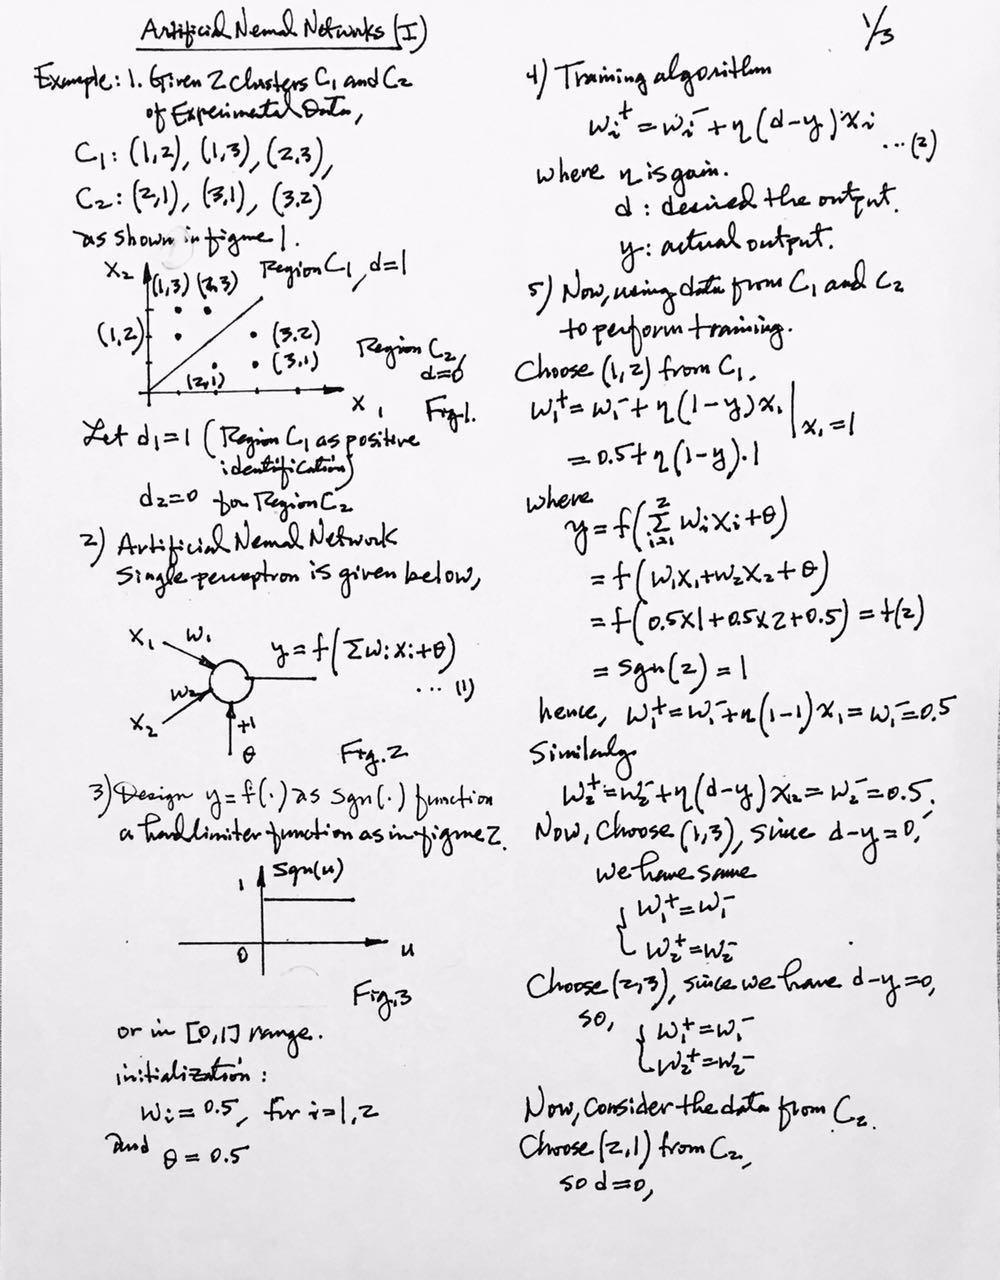 Artificial Neural Networks (I)
1/3
Example: 1. Given 2 clusters C₁ and C₂
of Experimental Data,
C₁: (1,2), (1,3), (2,3),
C₂: (2,1), (3,1), (3,2)
as shown in figure 1.
X₂
(1,3) (2,3)
Region C₁, d=1
(1,2)
(3,2)
(3,1)
(2,1)
Region C₂,
d=0
X₁
Fig.1.
Let d₁=1 (Region C₁ as positive
identification)
d₂=0 for Region C₂
2) Artificial Neural Network
Single perceptron is given below,
X₁ W₁
y = f(ΣWiXi+θ)
... (1)
W₂
X₂
+1
θ
Fig.2
3) Design y=f(·) as sgn(·) function
a hardlimiter function as in figure 2.
1
Sgn(u)
0
u
Fig.3
or in [0,1] range.
initialization:
Wi = 0.5, for i=1,2
and θ = 0.5
4) Training algorithm
Wi⁺ = Wi⁻ + η(d-y)Xi
...(2)
where η is gain.
d: desired the output.
y: actual output.
5) Now, using data from C₁ and C₂
to perform training.
Choose (1,2) from C₁.
W₁⁺ = W₁⁻ + η(1-y)X₁ | X₁=1
= 0.5 + η(1-y)·1
where
y = f(Σ²ᵢ₌₁ WiXi + θ)
= f(W₁X₁+W₂X₂+θ)
= f(0.5X1+0.5X2+0.5) = f(2)
= sgn(2) = 1
hence, W₁⁺=W₁⁻+η(1-1)X₁=W₁⁻=0.5
Similarly
W₂⁺=W₂⁻+η(d-y)X₂=W₂⁻=0.5.
Now, Choose (1,3), since d-y=0,
we have same
{ W₁⁺=W₁⁻
W₂⁺=W₂⁻
Choose (2,3), since we have d-y=0,
so, { W₁⁺=W₁⁻
W₂⁺=W₂⁻
Now, consider the data from C₂.
Choose (2,1) from C₂,
so d=0,